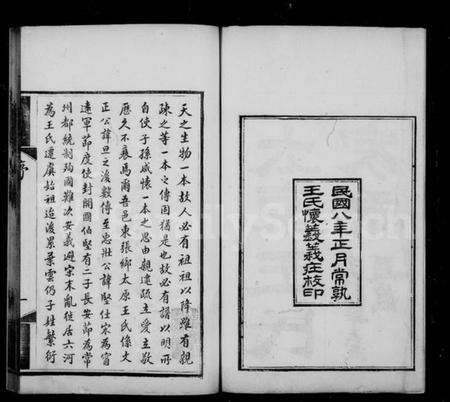 民國八年正月常孰
王氏懷義義莊校印
天之生物一本故人必有祖祖以降雖有親
疎之等一本之傳固猶是也故必有譜以明所
自使子孫咸懷一本之思由親遠疏主愛主敬
歷久不衰馬爾吾邑東張鄉太原王氏係文
正公諱旦之後數傳至忠壯公諱堅仕宋為甯
遠軍節度使封開國伯堅有二子長安節為常
州都統制殉國難次安義避宋末亂徙居六河
為王氏遷虞始祖迨後累葉雲仍子姓繁衍